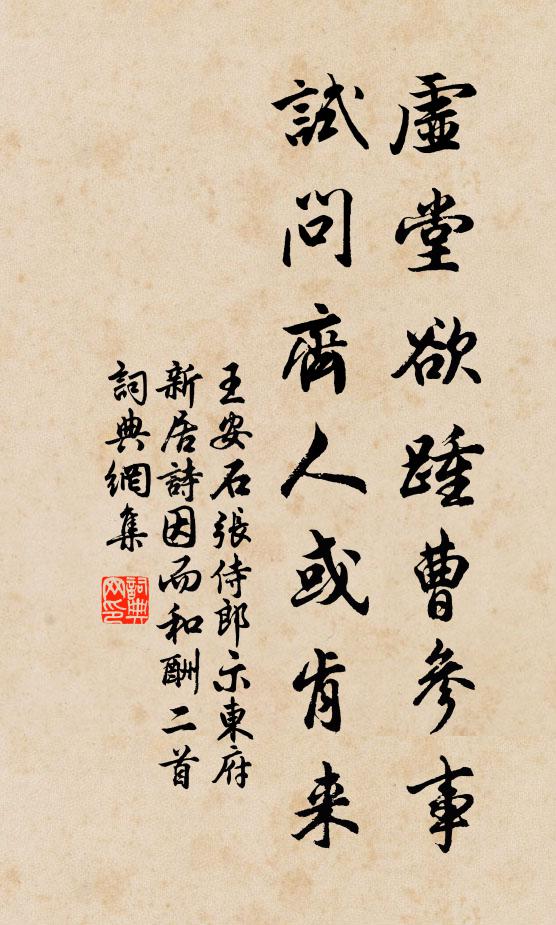 虛堂欲踵曹參事
試問齊人或肯来
王安石張侍郎示東府
新居詩因而和酬二首
詞典網集
詞典
网印